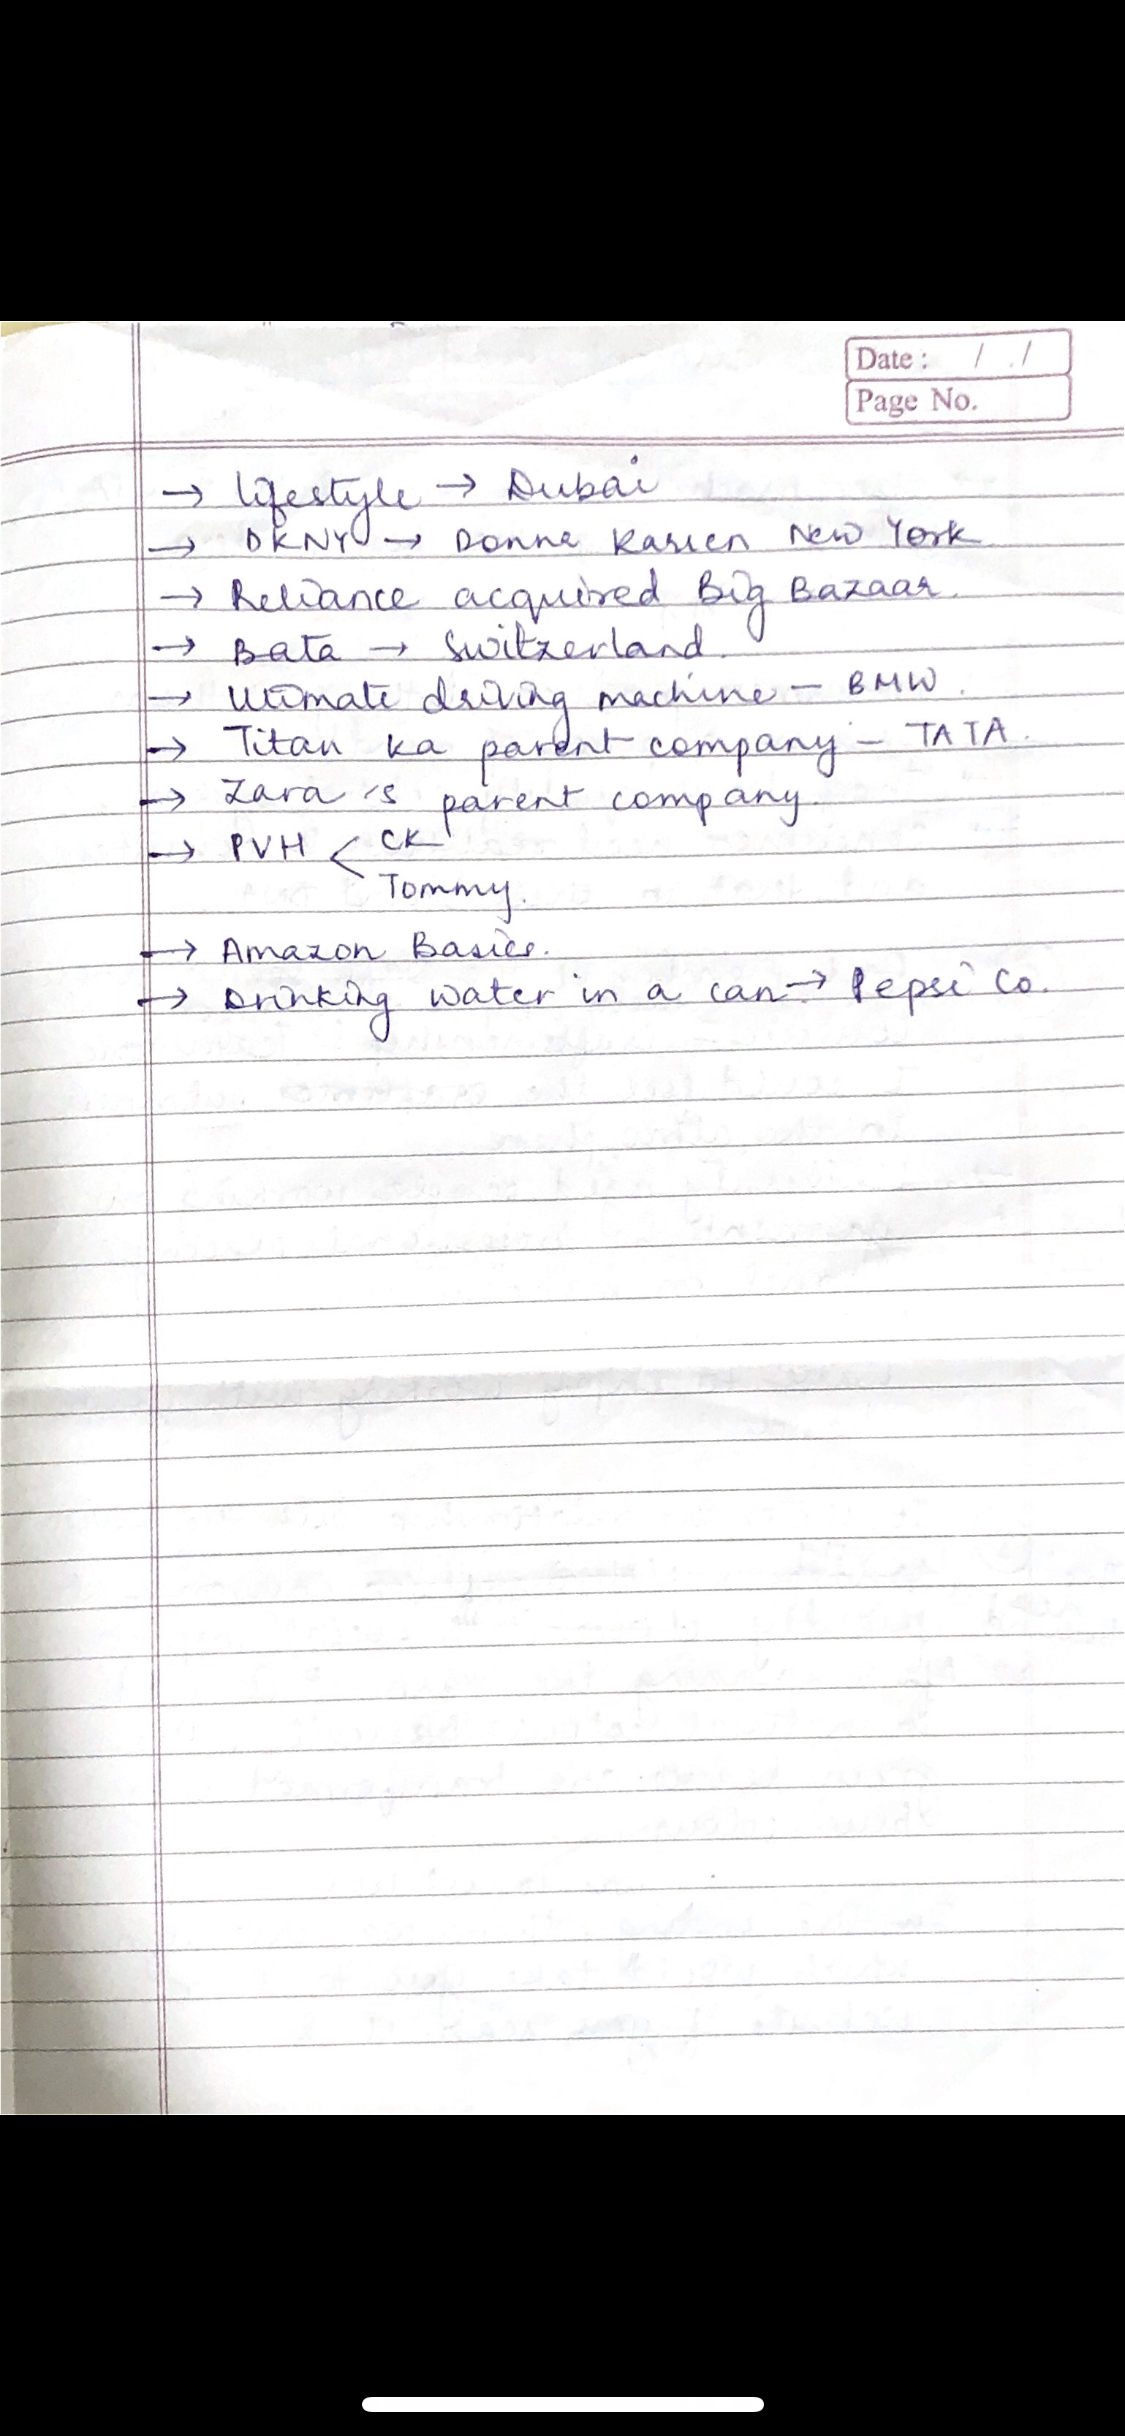 Date : / /
Page No.
→ lifestyle → Dubai
→ DKNY → Donna Karen New York
→ Reliance acquired Big Bazaar.
→ Bata → Switzerland.
→ Ultimate driving machine – BMW.
→ Titan ka parent company – TATA.
→ Zara's parent company.
→ PVH < CK
Tommy.
→ Amazon Basics.
→ Drinking water in a can → Pepsi Co.